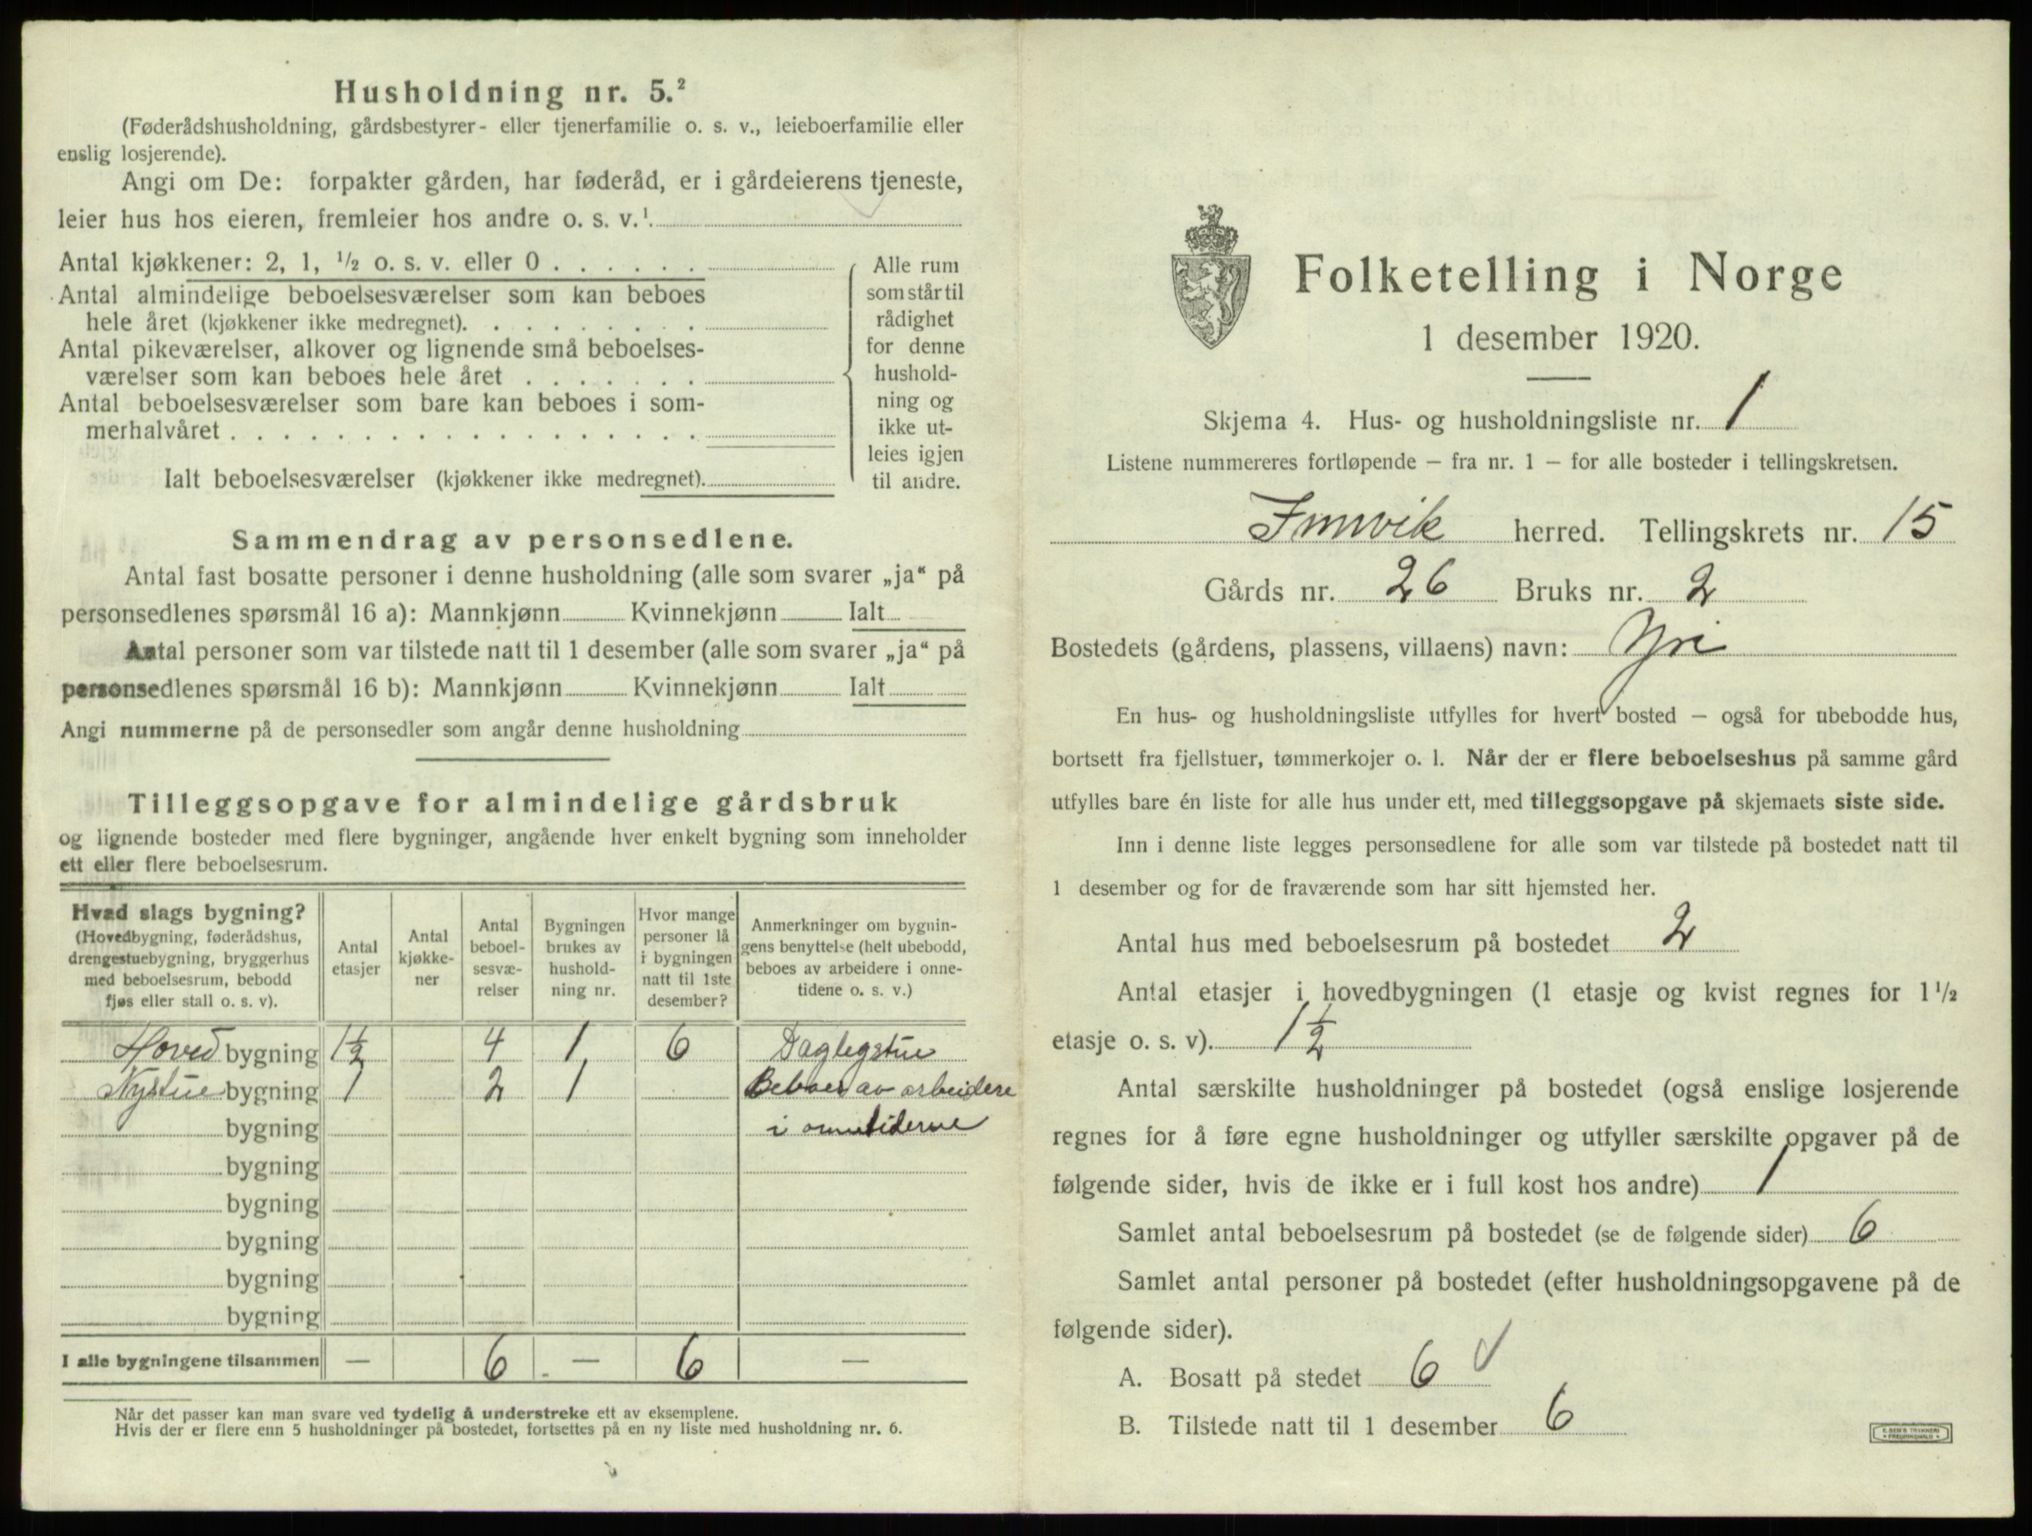 Husholdning nr. 5.²
(Føderådshusholdning, gårdsbestyrer- eller tjenerfamilie o. s. v., leieboerfamilie eller
enslig losjerende).
Angi om De: forpakter gården, har føderåd, er i gårdeierens tjeneste,
leier hus hos eieren, fremleier hos andre o. s. v.¹
Antal kjøkkener: 2, 1, ½ o. s. v. eller 0
Antal almindelige beboelsesværelser som kan beboes
hele året (kjøkkener ikke medregnet).
Antal pikeværelser, alkover og lignende små beboelses-
værelser som kan beboes hele året
Antal beboelsesværelser som bare kan beboes i som-
merhalvåret
Ialt beboelsesværelser (kjøkkener ikke medregnet).
Alle rum
som står til
rådighet
for denne
hushold-
ning og
ikke ut-
leies igjen
til andre.
Sammendrag av personsedlene.
Antal fast bosatte personer i denne husholdning (alle som svarer „ja“ på
personsedlenes spørsmål 16 a): Mannkjønn Kvinnekjønn Ialt
Antal personer som var tilstede natt til 1 desember (alle som svarer „ja“ på
personsedlenes spørsmål 16 b): Mannkjønn Kvinnekjønn Ialt
Angi nummerne på de personsedler som angår denne husholdning
Tilleggsopgave for almindelige gårdsbruk
og lignende bosteder med flere bygninger, angående hver enkelt bygning som inneholder
ett eller flere beboelsesrum.
Hvad slags bygning?
(Hovedbygning, føderådshus,
drengestuebygning, bryggerhus
med beboelsesrum, bebodd
fjøs eller stall o. s. v).
Antal
etasjer
Antal
kjøkke-
ner
Antal
beboel-
sesvæ-
relser
Bygningen
brukes av
hushold-
ning nr.
Hvor mange
personer lå
i bygningen
natt til 1ste
desember?
Anmerkninger om bygnin-
gens benyttelse (helt ubebodd,
beboes av arbeidere i onne-
tidene o. s. v.)
Hoved bygning 1½ 4 1 6 Daglegstue
Nystue bygning 1 2 1 Beboes av arbeidere
bygning i onnetiderne
bygning
bygning
bygning
bygning
bygning
I alle bygningene tilsammen — 6 — 6 —
Når det passer kan man svare ved tydelig å understreke ett av eksemplene.
Hvis der er flere enn 5 husholdninger på bostedet, fortsettes på en ny liste med husholdning nr. 6.
Folketelling i Norge
1 desember 1920.
Skjema 4. Hus- og husholdningsliste nr. 1
Listene nummereres fortløpende — fra nr. 1 — for alle bosteder i tellingskretsen.
Innvik herred. Tellingskrets nr. 15
Gårds nr. 26 Bruks nr. 2
Bostedets (gårdens, plassens, villaens) navn: Yri
En hus- og husholdningsliste utfylles for hvert bosted — også for ubebodde hus,
bortsett fra fjellstuer, tømmerkojer o. l. Når der er flere beboelseshus på samme gård
utfylles bare én liste for alle hus under ett, med tilleggsopgave på skjemaets siste side.
Inn i denne liste legges personsedlene for alle som var tilstede på bostedet natt til
1 desember og for de fraværende som har sitt hjemsted her.
Antal hus med beboelsesrum på bostedet 2
Antal etasjer i hovedbygningen (1 etasje og kvist regnes for 1½
etasje o. s. v). 1½
Antal særskilte husholdninger på bostedet (også enslige losjerende
regnes for å føre egne husholdninger og utfyller særskilte opgaver på de
følgende sider, hvis de ikke er i full kost hos andre) 1
Samlet antal beboelsesrum på bostedet (se de følgende sider) 6
Samlet antal personer på bostedet (efter husholdningsopgavene på de
følgende sider).
A. Bosatt på stedet 6
B. Tilstede natt til 1 desember 6